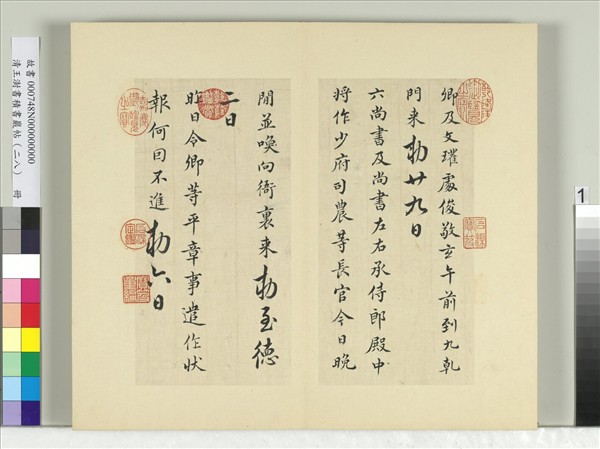 卿及文瓘處俊敬玄午前到九乾
門来勅廿九日
六尚書及尚書左右丞侍郎殿中
將作少府司農等長官今日晚
閒並喚向衙裏来勅至德
二日
昨日令卿等平章事遣作狀
報何因不進勅六日
故書 000748N000000000
清王澍書積書巖帖(二八) 冊
1